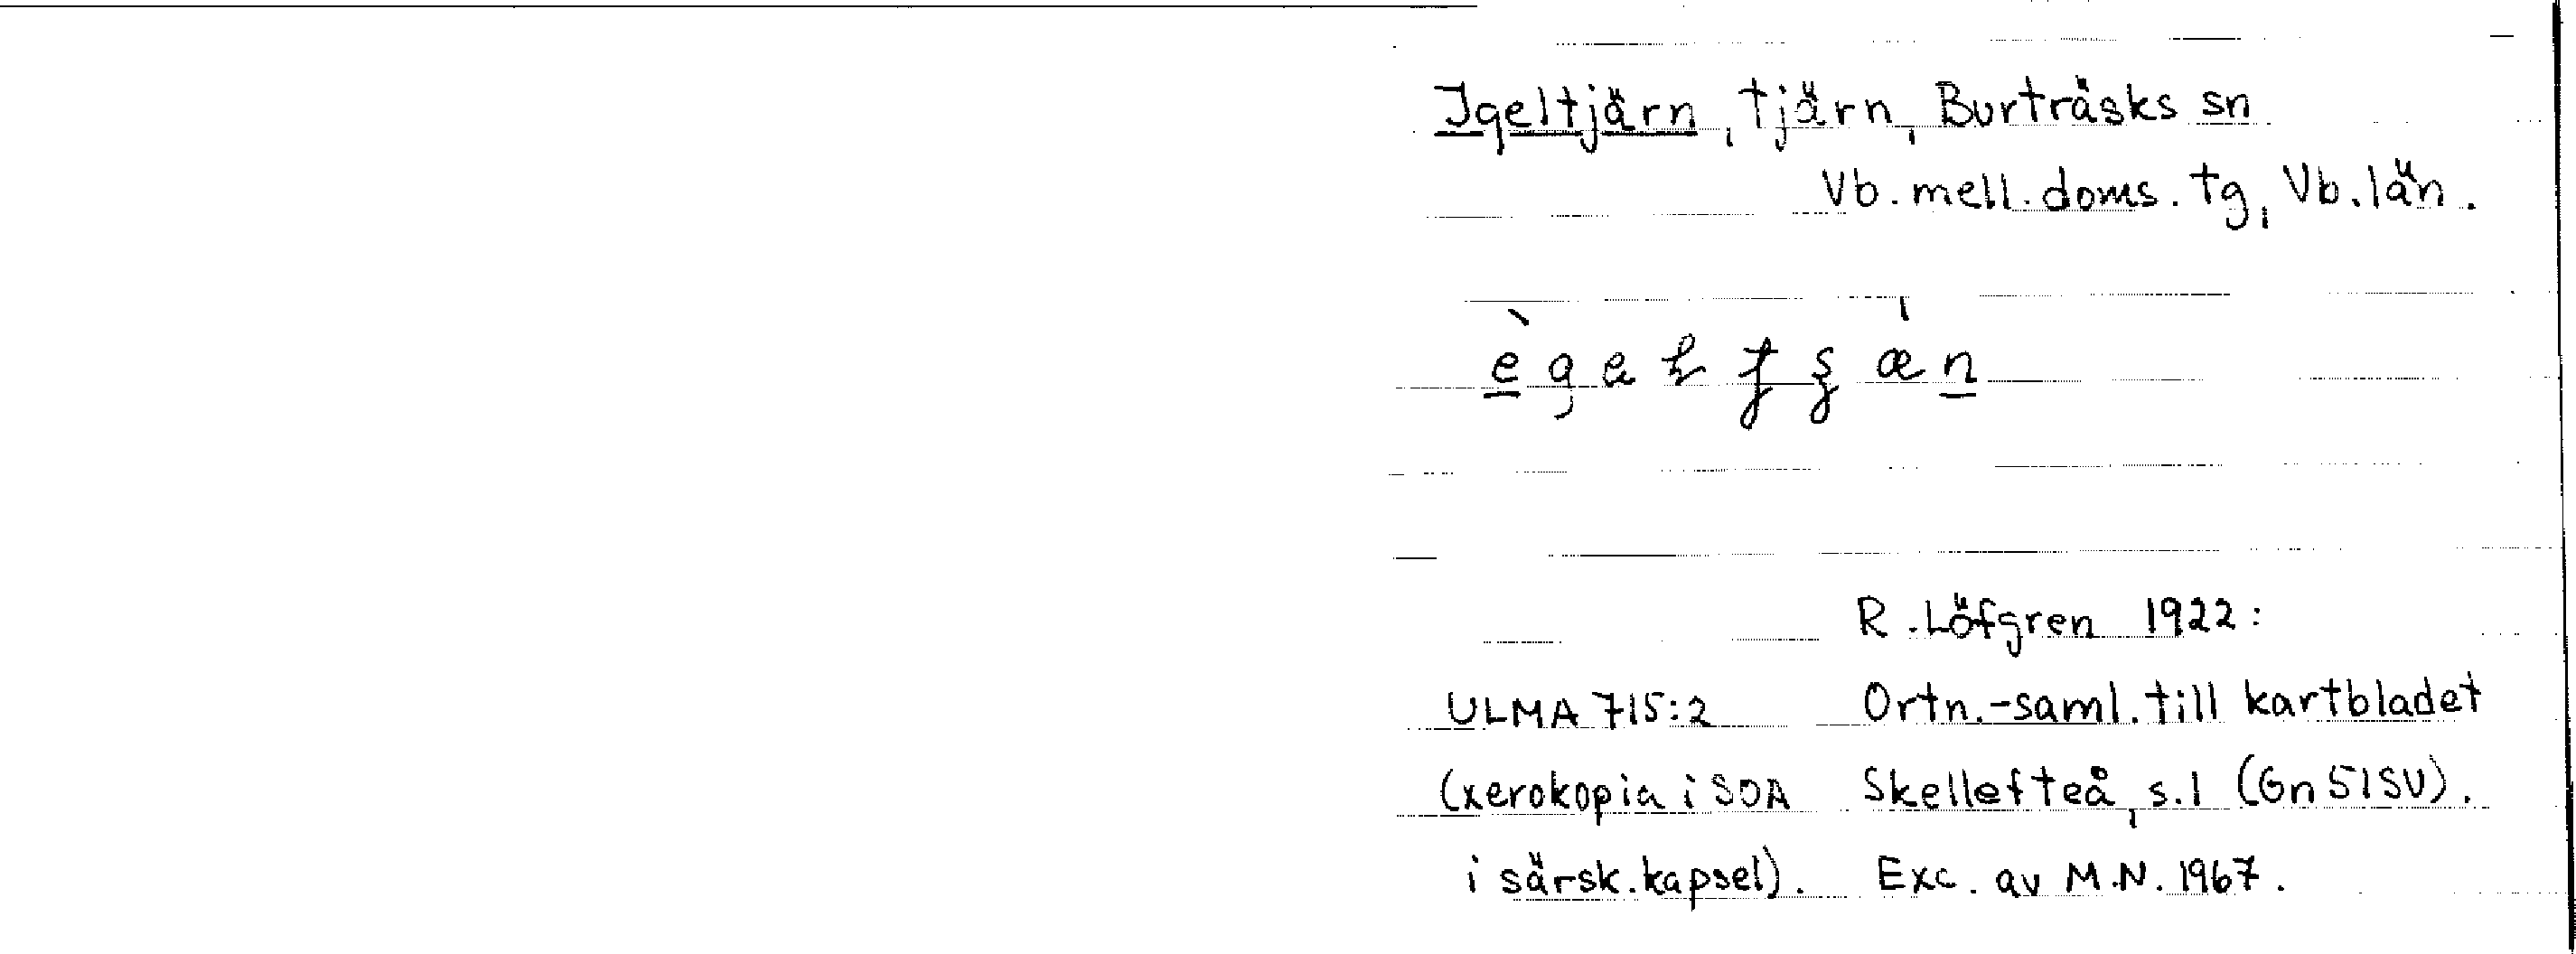 Igeltjärn, tjärn, Burträsks sn
Vb. mell. doms. tg, Vb. län.
R. Löfgren 1922:
ULMA 715:2 Ortn.-saml. till kartbladet
(xerokopia i SOA Skellefteå, s. 1 (Gn 51SV).
i särsk. kapsel). Exc. av M.N. 1967.